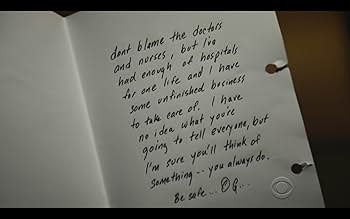 dont blame the doctors
and nurses, but I've
had enough of hospitals
for one life and I have
some unfinished business
to take care of. I have
no idea what you're
going to tell everyone, but
I'm sure you'll think of
something -- you always do.
Be safe...